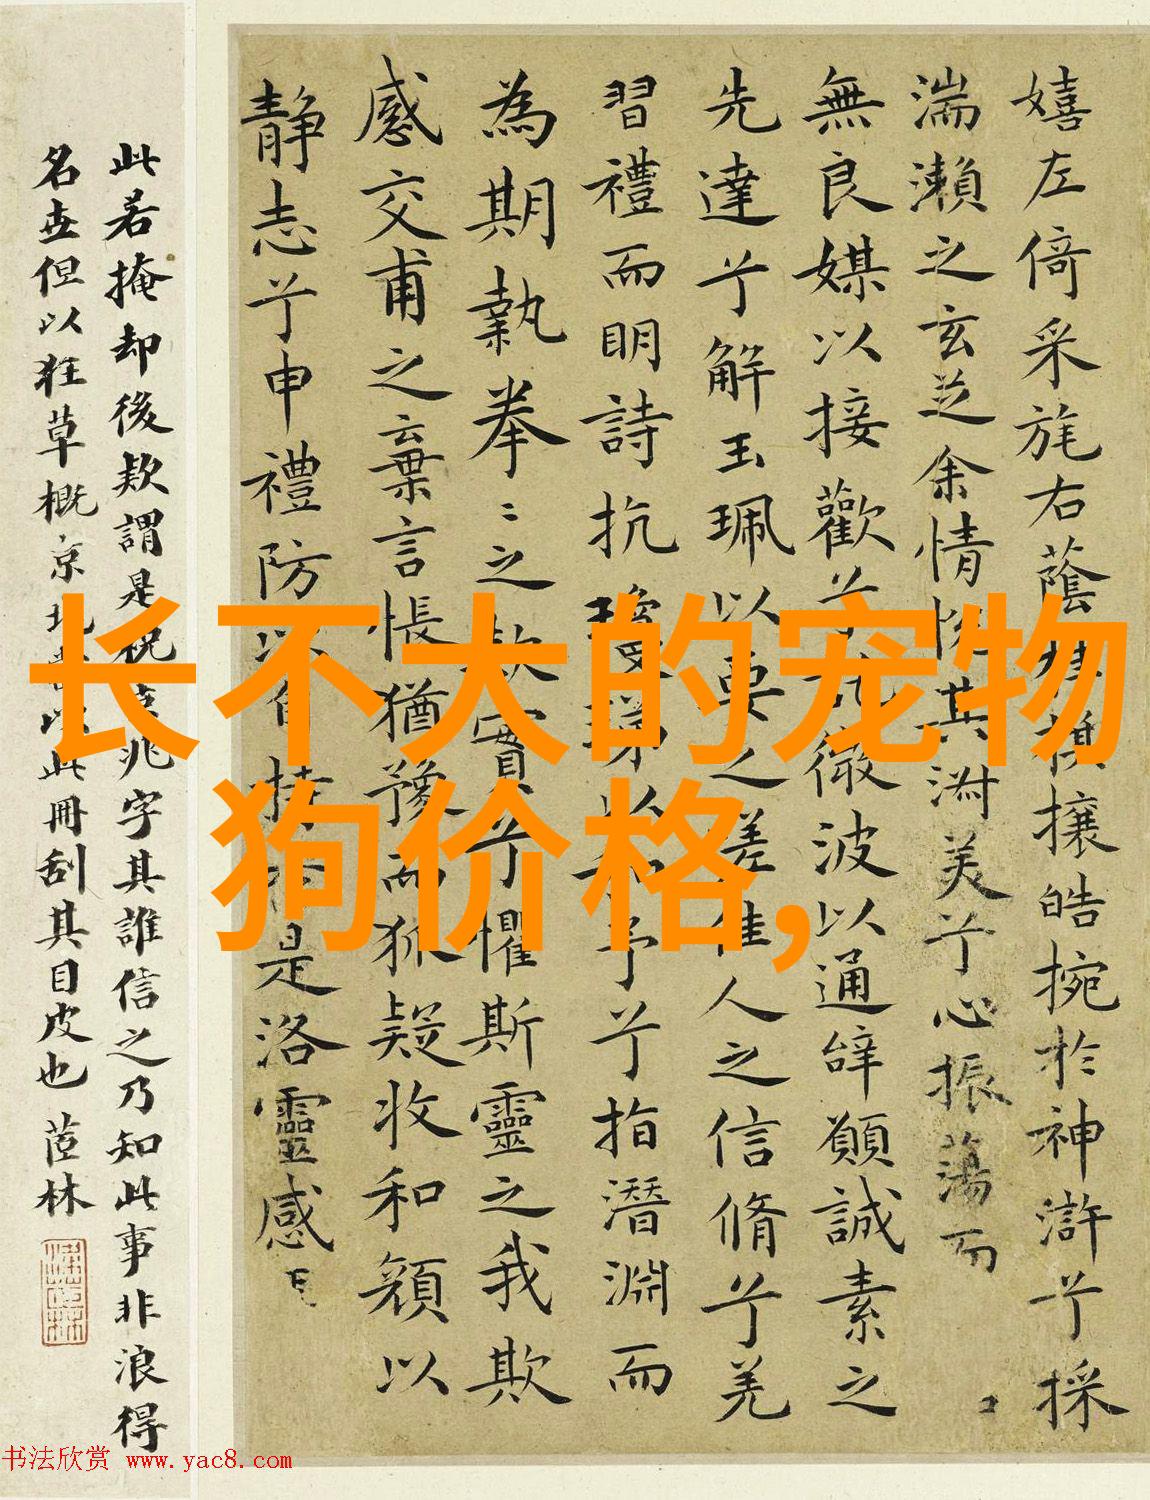 嬉左倚采旄右蔭桂旗攘皓捥於神滸兮採
湍瀨之玄芝余情悦其淑美兮心振蕩而
無良媒以接歡兮託微波以通辭願誠素之
先達兮解玉珮以要之嗟佳人之信脩兮羌
習禮而明詩抗瓊珶以和予兮指潛淵而
為期執拳〻之款實兮懼斯靈之我欺
感交甫之棄言悵猶豫而狐疑收和顏以
静志兮申禮防以自持於是洛靈感
此若掩却後款謂是祝京兆字其誰信之乃知此事非浪得
名世但以狂草概京兆以此冊刮其目皮也 茝林
长不大的宠物
狗价格,
书法欣赏 www.yac8.com